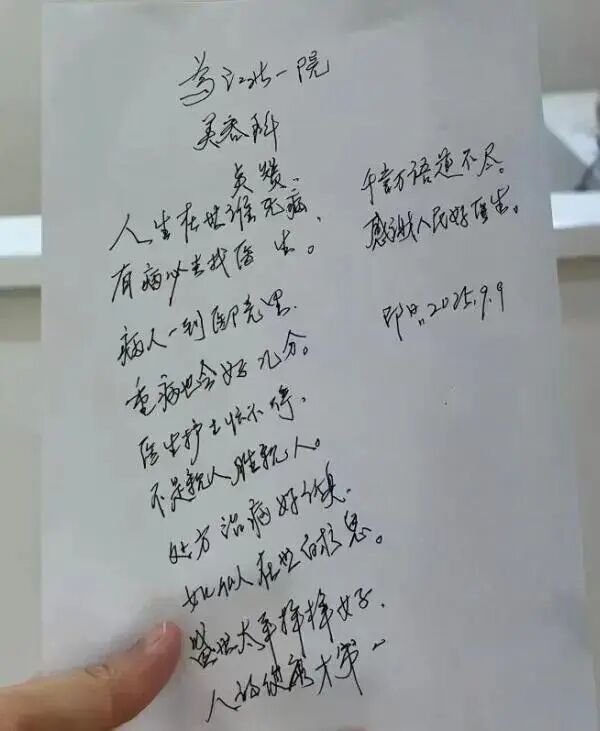 为江北一院
美容科
点赞.
人生在世谁无病,
有病必去找医生。
病人一到医院里.
重病也会好几分。
医生护士忙不停,
不是亲人胜亲人。
处方治病好
如仙人在世白求恩。
盛世太平样样好,
人的健康才第一
千言万语道不尽。
感谢人民好医生。
即日.2025.9.9